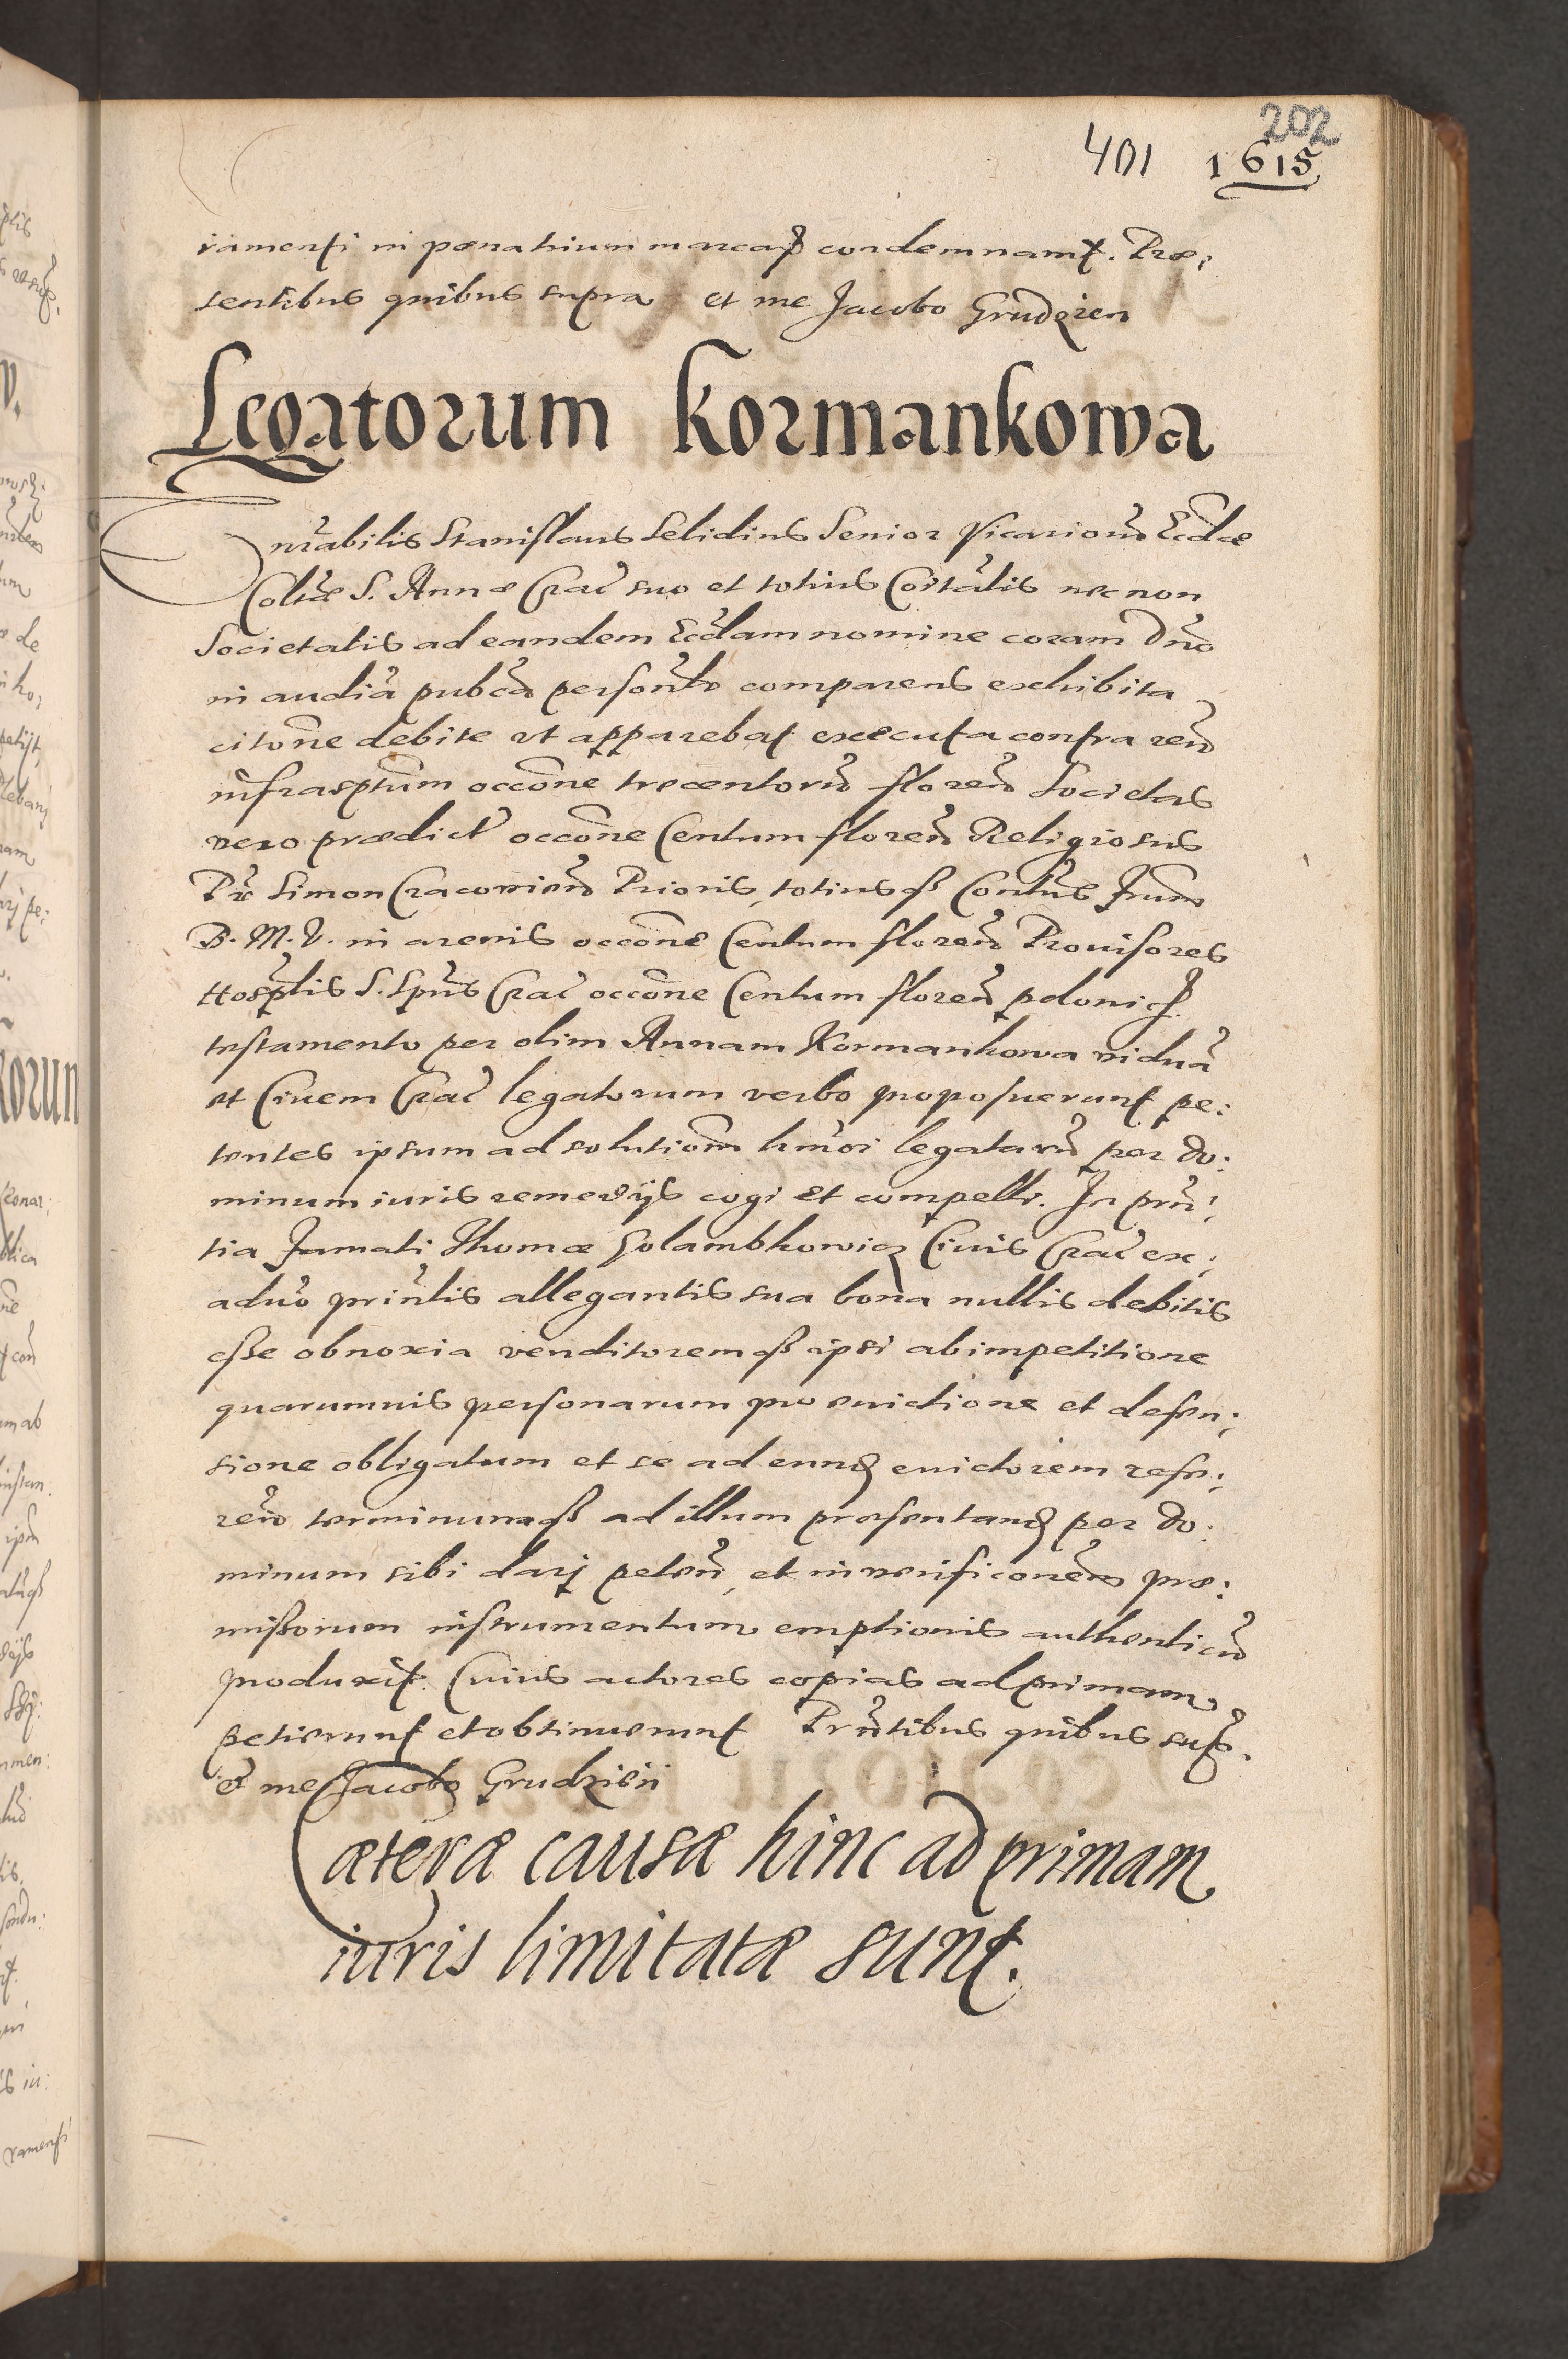 202
401 1615
ramenti in pœna trium marcaꝝ condemnamt. Præ;
sentibus quibus supra et me Jacobo Grudzien
Legatorum Kormankowa
Vnrãbilis Stanislaus Selidius Senior Vicariorũ Eccłæ
Colltæ S. Annæ Crac̃ suo et totius Coitatis nec non
Societatis ad eandem Eccłam nomine coram Dño
in audiã pubca personlr comparens exhibita
citoñe debite vt apparebat executa contra reũ
infrasptum occoñe trecentorũ floreñ Societas
vero prædict occoñe Centum floreñ Religiosus
Pr Simon Cracovieñ Prioris, totiusqꝫ Contus frum
B. M. V. in arenis occoñe Centum floreñ Prouisores
Hosptlis S. Spũs Crac̃ occoñe Centum floreñ polonicꝝ
testamento per olim Annam Kormankowa viduã
et Ciuem Crac̃ legatorum verbo proposuerunt pe:
tentes ipsum ad solutiom hmoi legatarũ per do:
minum iuris remedijs cogi et compelli. In prñ:
tia famati Thomæ Golambkowicz Ciuis Crac̃ ex;
aduo prñtis allegantis sua bona nullis debitis
esse obnoxia venditoremqꝫ ipsi ab impetitione
quarumuis personarum pro euictione et defen;
sione obligatum et se ad eund euictorem refe;
reñ terminumqꝫ ad illum præsentand per do:
minum sibi darj peteñ, et in verificoñem præ:
missorum instrumentum emptionis authenticũ
produxit. Cuius actores copias ad primam
petierunt et obtinuerunt Prñtibus quibus sup.
& me Jacobo Grudzień
Cæteræ causæ hinc ad primam
iuris limitatæ sunt.